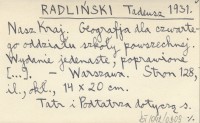 RADLIŃSKI Tadeusz 1931.
Nasz Kraj. Geografja dla czwarte-
go oddziału szkoły powszechnej.
Wydanie jedenaste, poprawione
[...]. - Warszawa. Stron 128,
il., okł., 14 x 20 cm.
Tatr i Podtatrza dotyczą s.